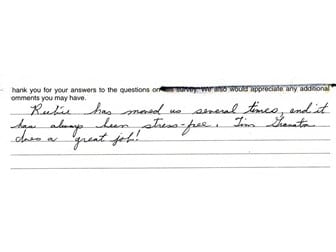 hank you for your answers to the questions on this survey. We also would appreciate any additional
omments you may have.
Rubie has moved us several times, and it
has always been stress-free. Tim
does a great job!